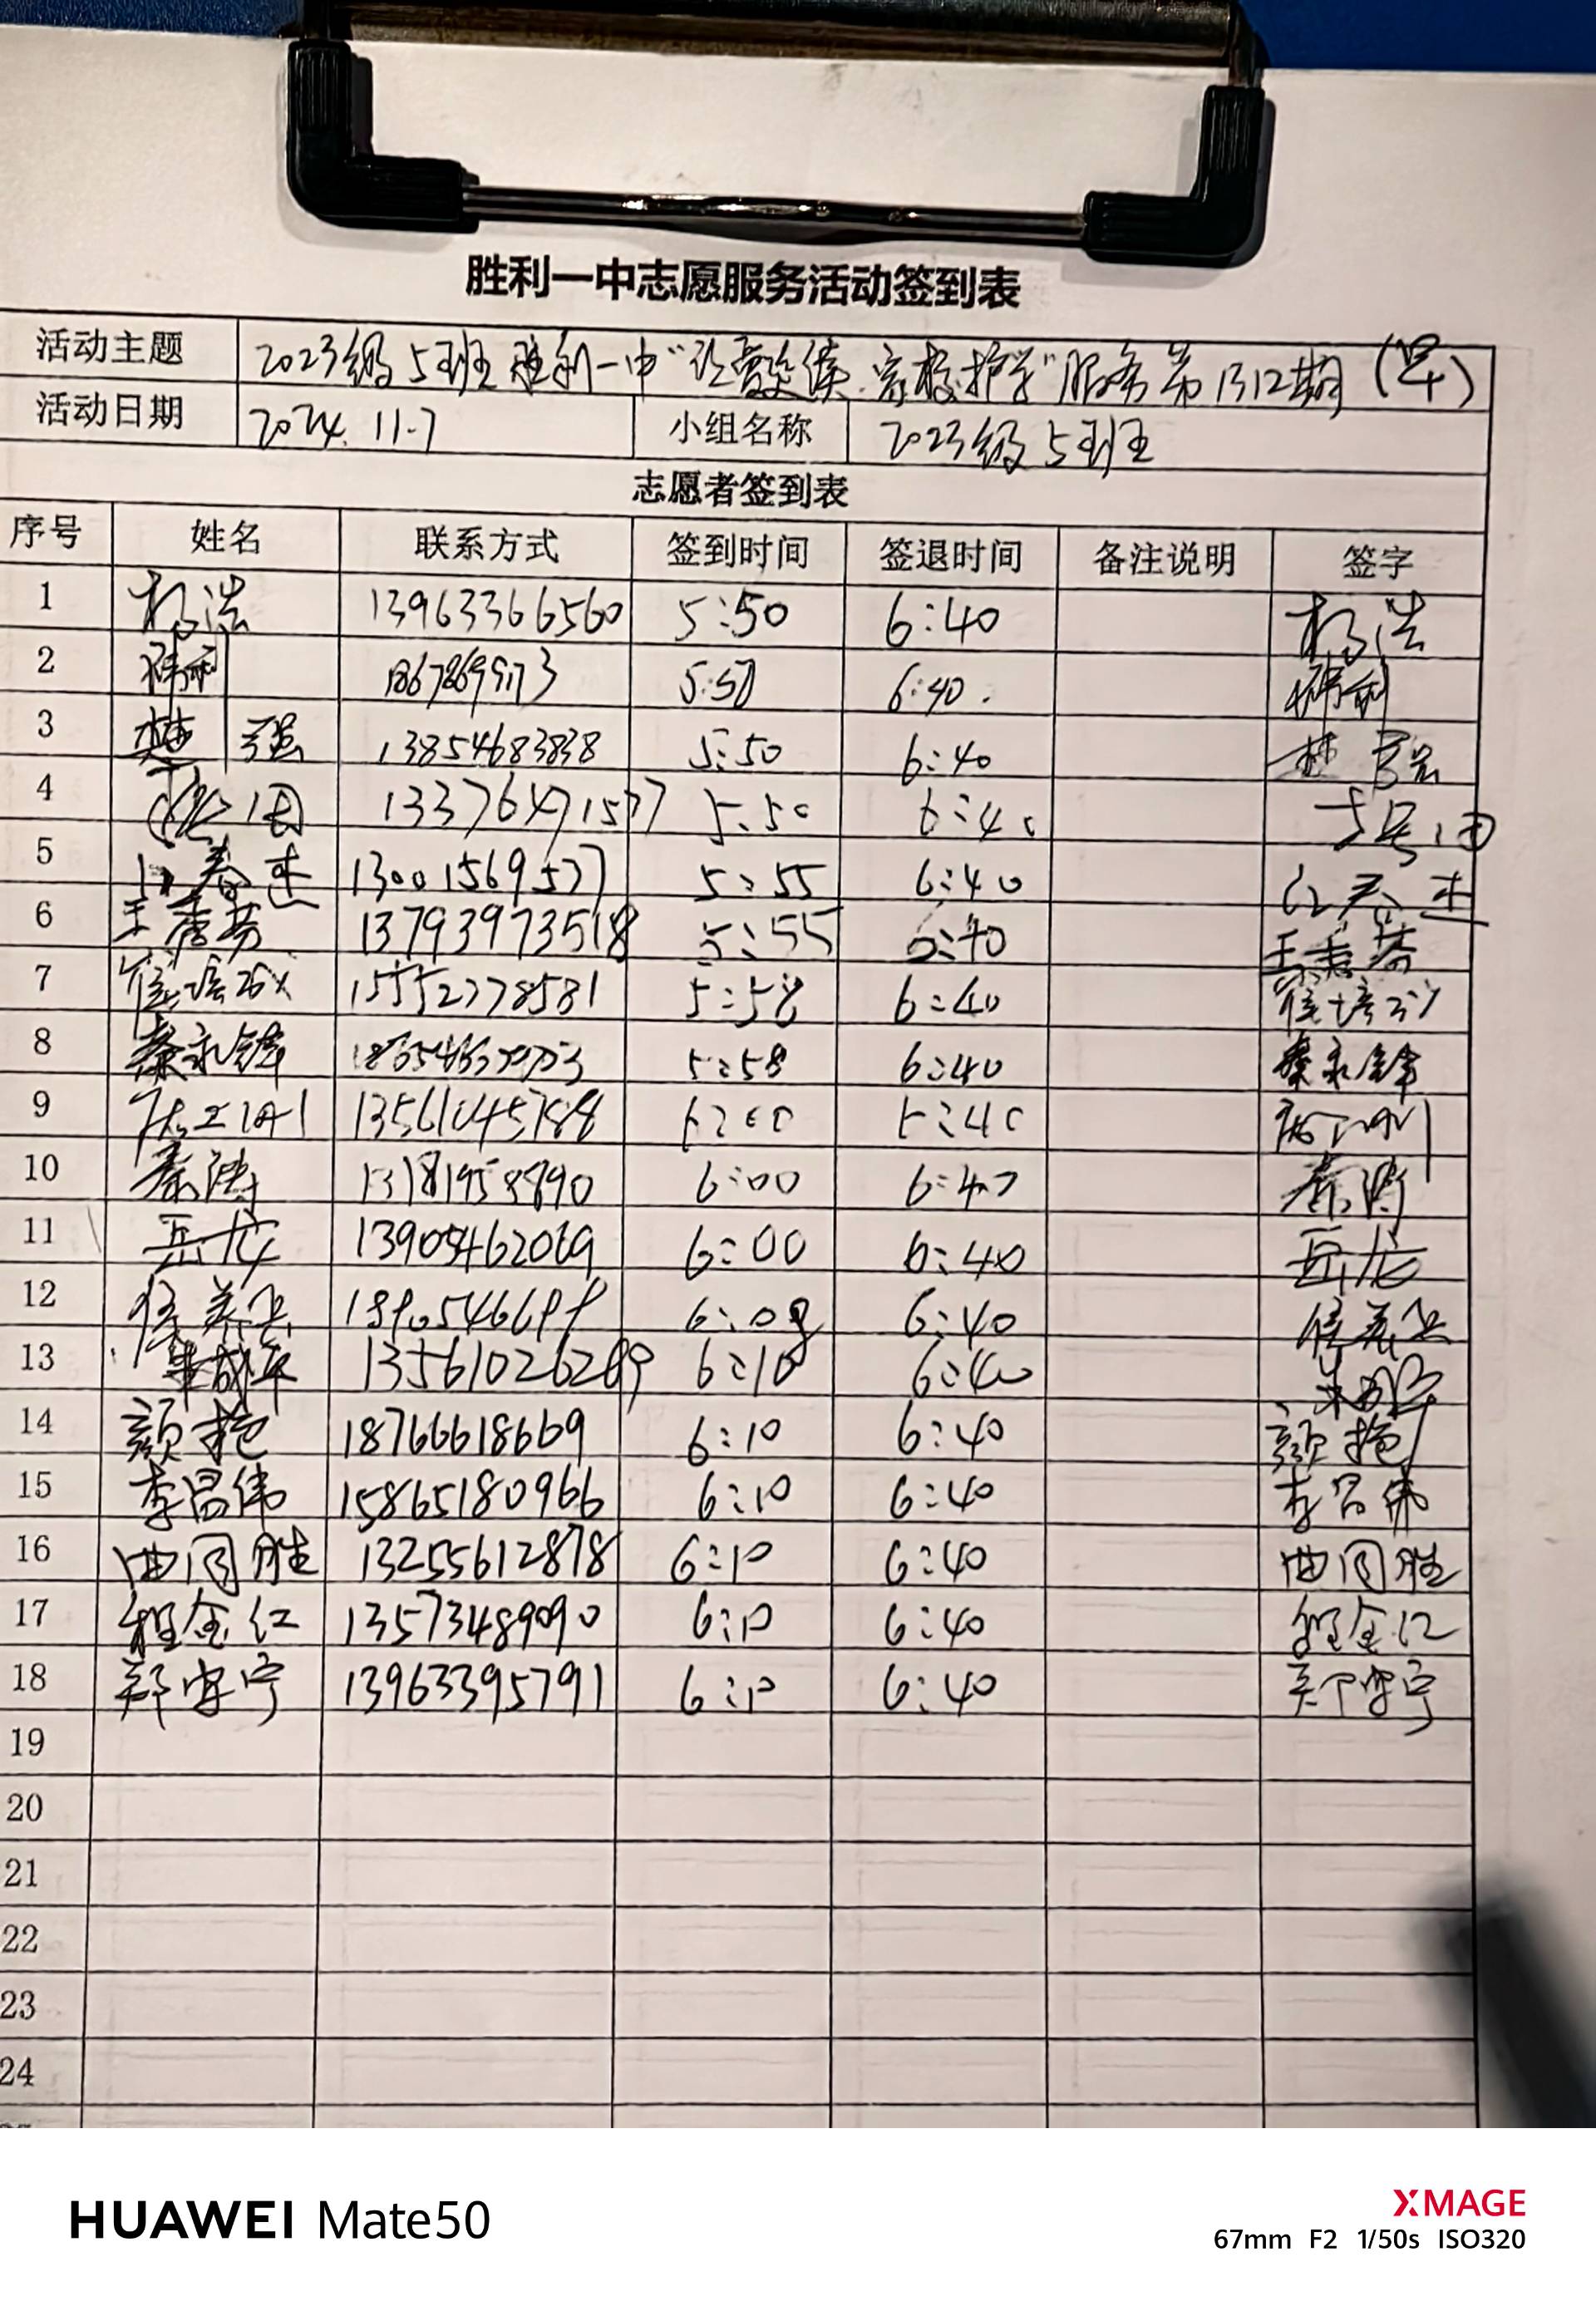 胜利一中志愿服务活动签到表
活动主题 2023级5班胜利一中"让爱延续.家校护学"服务第1312期(早)
活动日期 2024.11.7 小组名称 2023级5班
志愿者签到表
序号 姓名 联系方式 签到时间 签退时间 备注说明 签字
1 杨浩 13963366560 5:50 6:40 杨浩
2 5:50 6:40.
3 楚强 13854683838 5:50 6:40 楚强
4 5:50 6:40
5 13001569577 5:55 6:40
6 王秀芬 13793973518 5:55 6:40 王秀芬
7 15552778581 5:58 6:40
8 秦永锋 5:58 6:40 秦永锋
9 13561045788 6:00 6:40
10 秦涛 6:00 6:40 秦涛
11 岳龙 13905462069 6:00 6:40 岳龙
12 6:08 6:40
13 13561026289 6:10 6:40
14 颜艳 18766618669 6:10 6:40 颜艳
15 李昌伟 15865180966 6:10 6:40 李昌伟
16 曲同胜 13255612878 6:10 6:40 曲同胜
17 程金红 13573489090 6:10 6:40 程金红
18 郑学宁 13963395791 6:10 6:40 郑学宁
19
20
21
22
23
24
HUAWEI Mate50
XMAGE
67mm F2 1/50s ISO320